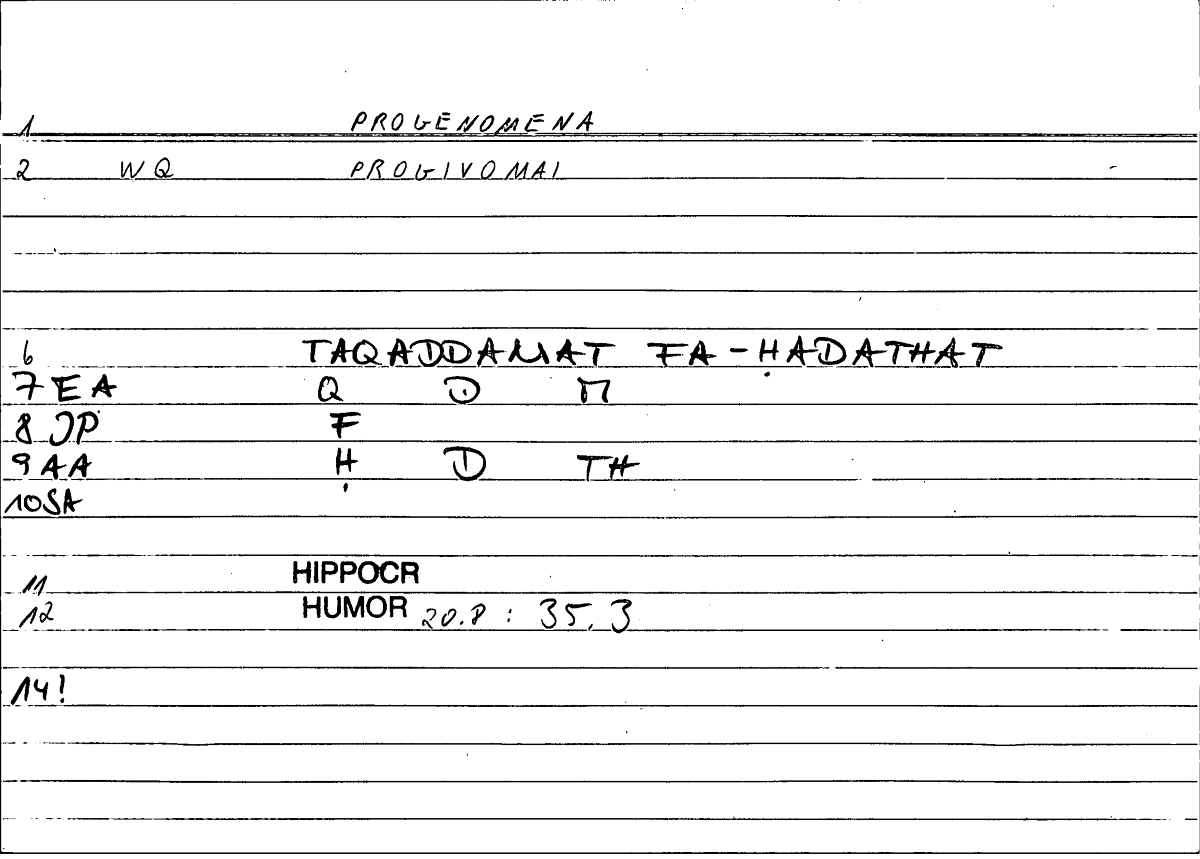 1 PROGENOMENA
2 WQ PROGIVOMAI
6 TAQADDAMAT FA-ḤADATHAT
7 EA Q D M
8 JP F
9 AA Ḥ D TH
10 SA
11 HIPPOCR
12 HUMOR 20.8 : 35.3
14!